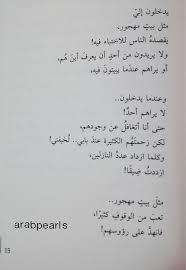 يدخلون إليّ
مثل بيتٍ مهجور..
يقصدهُ الناس للاختباء فيه!
ولا يريدون من أحدٍ أن يعرف أين هُم،
أو يراهم عندما يبيتون فيه.
وعندما يدخلون..
لا يراهم أحدٌ!
حتى أنا أتغافلُ عن وجودهم،
لكن زحمتهُم الكثيرة عندَ بابي.. تُخيفني!
وكلما ازداد عددُ النازلين،
ازددتُ ضيقًا!
مثلَ بيتٍ مهجور..
تعبَ من الوقوفِ كثيرًا،
فانهدَّ على رؤوسهم!
arabpearls
15